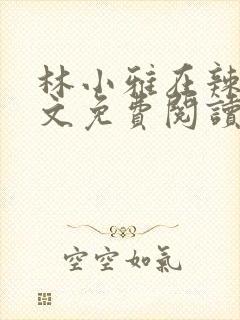 林小雅在辣
文免費閱讀
空空如氣